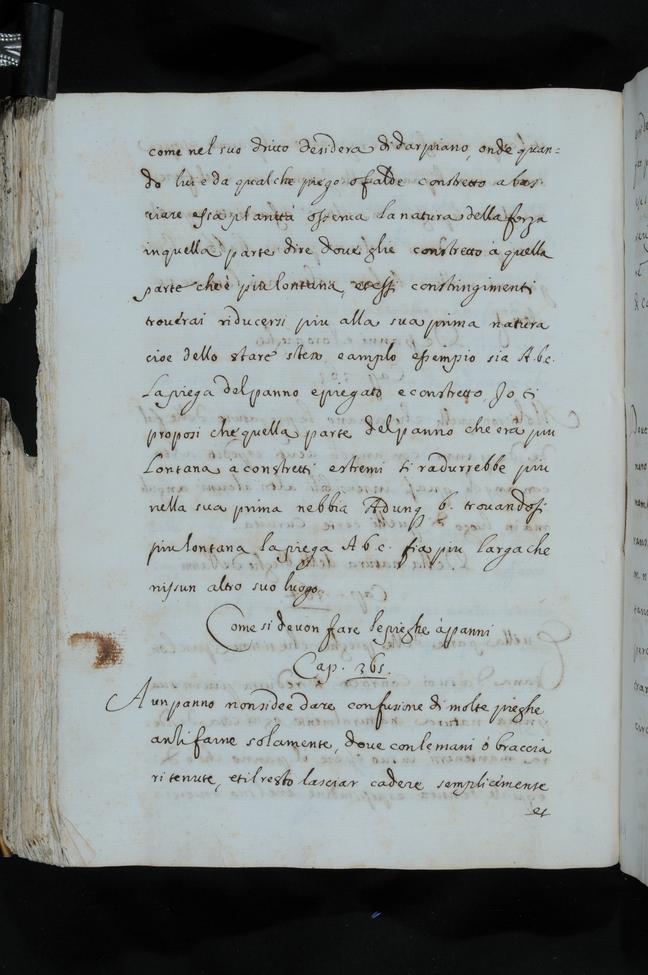 come nel suo dritto desidera di dar piano, onde quan=
do lui è da qualche piego o falde constretto a bas
ciare essa planità osserva la natura della forza
in quella parte dire dove glie constretto à quella
parte che è piu lontana, et essi constringimenti
trouerai ridursi piu alla sua prima natura
cioe dello stare steso e amplo essempio sia A.b.c.
La piega del panno e piegato e constretto, Io ti
proposi che quella parte del panno che era piu
Lontana a constretti estremi ti radurrebbe piu
nella sua prima nebbia Adunq b. trouandosi
piu lontana la piega A.b.c. fia piu larga che
nissun altro suo luogo.
Come si deuon fare le pieghe à panni
Cap. 365.
A un panno non si dee dare confusione di molte pieghe
anzi farne solamente, doue con le mani ò braccia
ritenute, et il resto lasciar cadere semplicimente
et